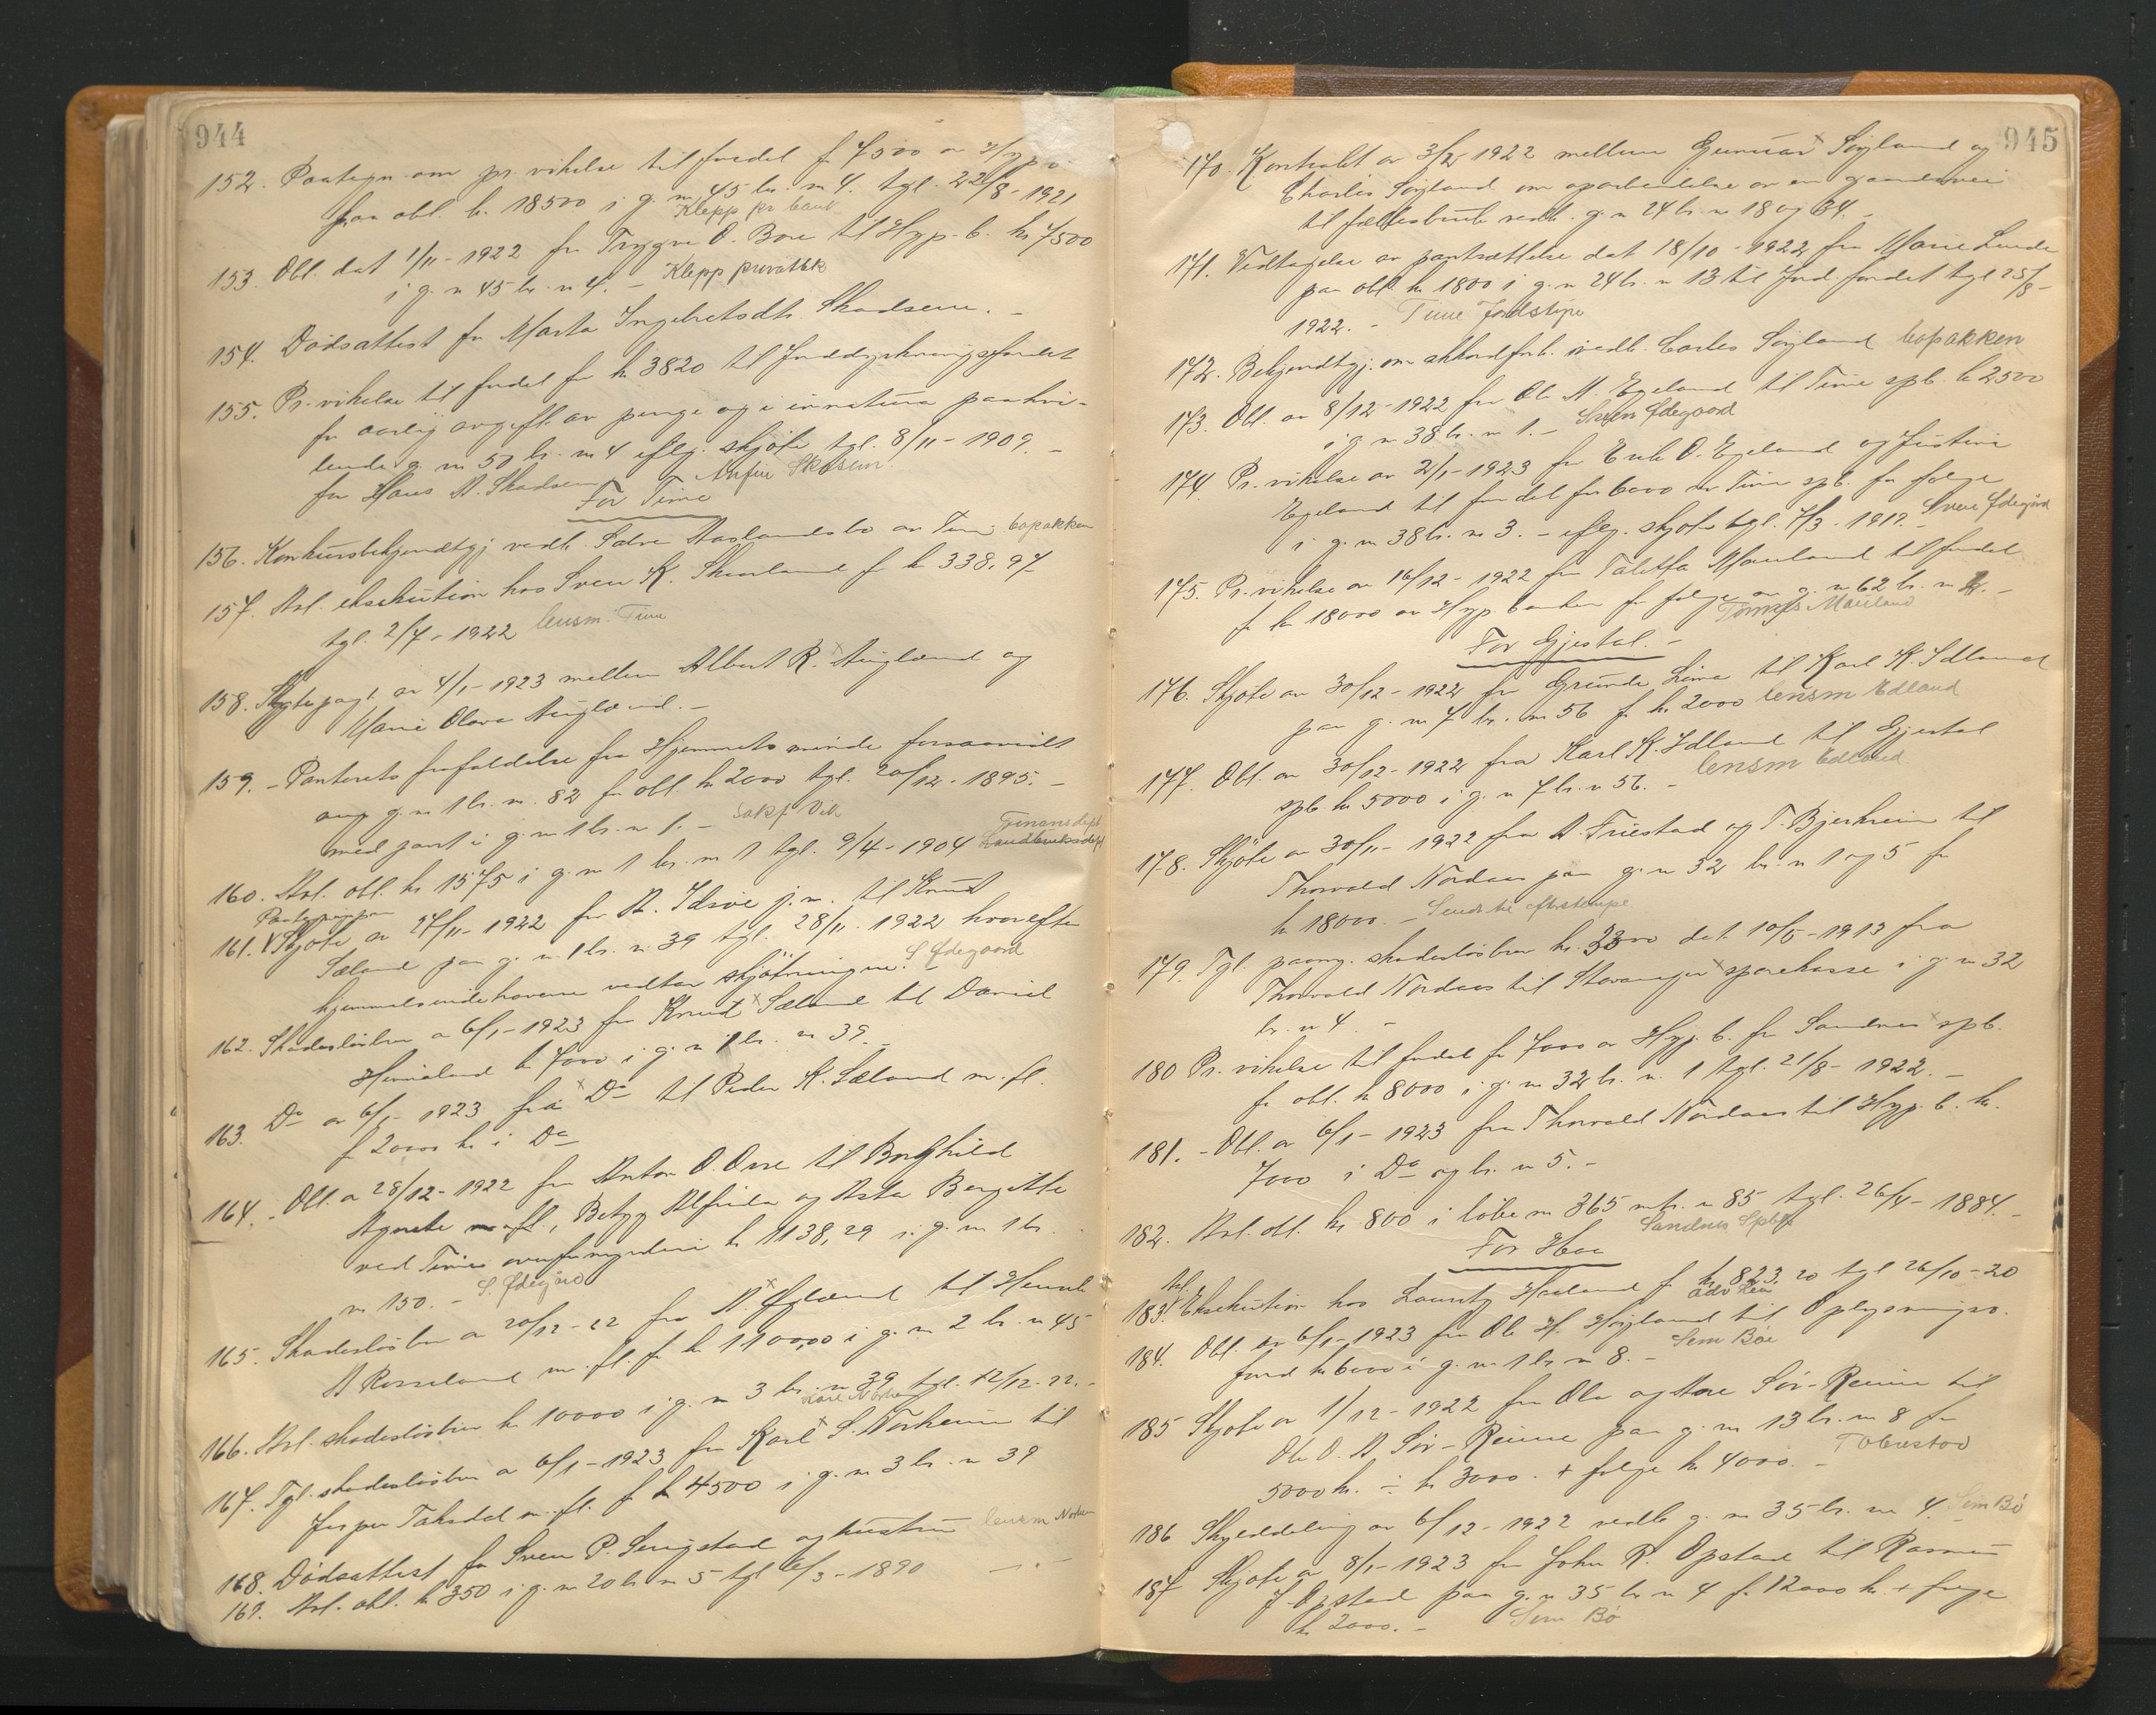 944
152. Paategn. om pr. vikelse til fordel f 7500 av Hyp b
paa obl. k. 18500 i g. n 45 br. n 4. tgl. 22/8-1921
Klepp pr bank
153. Obl. dat 1/11-1922 fra Trygve O. Bore til Hyp. b. kr 7500
i g. n 45 br. n 4. - Klepp privatbk
154. Dødsattest for Marta Ingebretsdtr. Skadsem. -
155. Pr. vikelse til fordel for kr 3820 til Jorddyrkningsfondet
for aarlig avgift av penge og i innatura paahvi-
lende g. n 50 br. n 4 eflg. skjöte tgl. 8/11-1909. -
for Hans A. Skadsem Arfin Skadsem
For Time
156. Konkursbekjendtgj. vedk. Salve Aaslands bo av Time bopakken
157. Avl. eksekution hos Sven K. Skarland f k 338.97
tgl. 2/7-1922 lensm. Time
158. Ægtepagt av 4/1-1923 mellem Albert R. Aniglænd og
Marie Olava Aniglænd. -
159. - Panterets frafaldelse fra Hjemmets minde forsaavidt
ang g. n 1 br. n. 82 for obl. kr 2000 tgl. 20/12-1895. -
med pant i g. n 1 br. n 1. - sakf Vik
160. Avl. obl. kr 1575 i g. n 1 br. n 1 tgl. 9/4-1904 Finansdept
Landbruksdept
Paategning paa
161. Skjöte av 27/11-1922 fra A. Idsöe j. n. til Knud
Sæland paa g. n 1 br. n 39 tgl. 28/11. 1922 hvorefter
hjemmelsindehaverne vedtar skjötningen. S Ødegaard
162. Skadeslösbrev av 6/1-1923 fra Knud Sæland til Daniel
Hermaland k 7000 i g. n 1 br. n 39. -
163. Do av 6/1-1923 fra Do til Peder K. Sæland m. fl.
f 20000 kr i Do
164. - Obl. av 28/12-1922 fra Anton O. Orre til Borghild
Agnete m fl., Betzy Alfrida og Asta Bergitte
ved Times overformynderi k 1138,29 i g. n 1 br.
n 150. - S. Ødegård
165. Skadeslösbrev av 20/12-22 fra A. Øglænd til Henrik
A Rosseland m. fl. f k 110000 i g. n 2 br. n 45
166. Avl. skadeslösbrev kr 10000 i g. n 3 br. n 39 tgl. 12/12-22. -
167. Tgl. skadeslösbrev av 6/1-1923 fra Karl S. Norheim til
Jesper Taksdal m. fl. f k 4500 i g. n 3 br. n 39
168. Dødsattest for Sven P. Serigstad og hustru lensm Norheim
169. Avl. obl. k 350 i g. n 20 br. n 5 tgl 6/3-1890
945
170. Kontrakt av 3/2 1922 mellem Gunnar Søyland og
Charles Søyland om oparbeidelse av en gaardsvei
til fællesbruk vedk. g. n 24 br. n 18 og 34. -
171. Vedtagelse av pantsættelse dat 18/10-1922 fra Marie Lende
paa obl. kr 1800 i g. n 24 br. n 13 til Jord.fondet tgl 25/8-
1922. - Time Jordstyre
172. Bekjendtgj. om akkordforh. vedk. Carles Søyland bopakken
173. Obl. av 8/12-1922 fra Ole N. Egeland til Time spb. k 2500
i g n 38 br. n 1. - Sven Ødegaard
174. Pr. vikelse av 2/1-1923 fra Erik O. Egeland og Justine
Egeland til fordel for 6000 av Time spb. for folge
i g. n 38 br. n 3. - eflg. skjöte tgl. 7/3-1912. - Sven Ødegård
175. Pr. vikelse av 16/12-1922 fra Taletta Mauland til fordel
f kr 18000 av Hyp. banken for folge av g. n 62 br. n 2. -
Tønnes Mauland
For Gjestal. -
176. Skjöte av 30/12-1922 fra Grunde Lima til Karl K. Idland
paa g. n 7 br. n 56 f kr 2000 lensm Edland
177. Obl. av 30/12-1922 fra Karl K. Idland til Gjestal
spb kr 5000 i g. n 7 br. n 56. - lensm Edland
178. Skjöte av 30/11-1922 fra A. Friestad og T. Bjerkreim til
Thorvald Nordaas paa g. n 32 br. n 1 og 5 for
kr 18000. - Sendt til efterstempe
179. Tgl. paany. skadeslösbrev kr. 3300 dat. 10/5-1913 fra
Thorvald Nordaas til Stavanger sparekasse i g n 32
br. n 4. -
180 Pr. vikelse til fordel f 7000 av Hyp. b. fra Sandnes spb.
for obl. k 8000 i g. n 32 br. n. 1 tgl. 21/8-1922. -
181. - Obl. av 6/1-1923 fra Thorvald Nordaas til Hyp. b. kr.
7000 i Do og br. n 5. -
182. Avl. obl. kr 800 i löbe n 365 mtr. n 85 tgl. 26/4-1884. -
Sandnes Spbk
For Haa
Avl.
183. Eksekution hos Lauritz Haaland f kr 823.20 tgl 26/10-20
184. Obl. av 6/1-1923 fra Ole H. Høyland til Oplysningsv.
fond kr 6000 i g. n 1 br n 8. - Sem Bøe
185 Skjöte av 1/12-1922 fra Ola og Tore Sör-Reime til
Ole O. A Sör-Reime paa g. n 13 br. n 8 for
5000 kr. ÷ k 3000. + folge kr 4000. -
186 Skylddeling av 6/12-1922 vedk g. n 35 br. n 4. Sem Bø
187 Skjöte av 8/1-1923 fra John R. Opstad til Rasmus
J. Opstad paa g. n 35 br. n 4 f 12000 kr. + folge
kr 2000. - Sem Bø